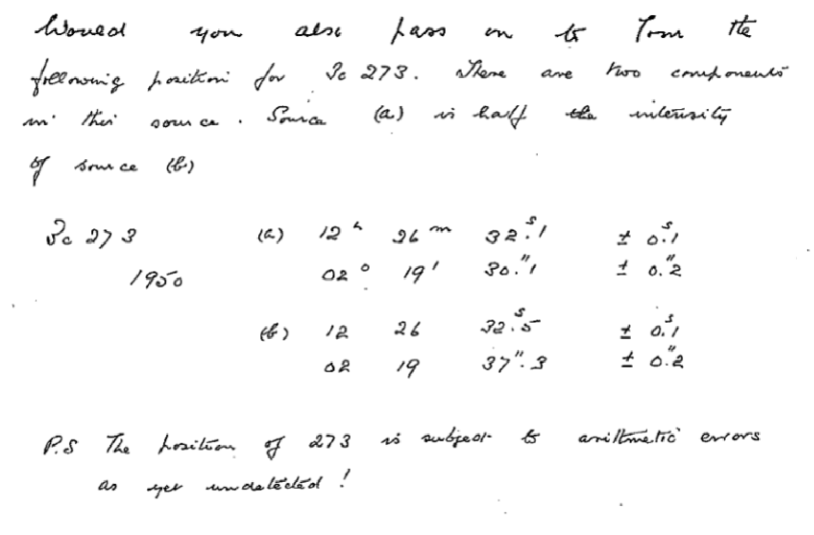 Would you also pass on to Tom the
following position for 3c 273. There are two components
in this source. Source (a) is half the intensity
of source (b)
3c 273 (a) 12ʰ 26ᵐ 32ˢ.1 ± 0ˢ.1
1950 02° 19' 30".1 ± 0".2
(b) 12 26 32ˢ.5 ± 0ˢ.1
02 19 37".3 ± 0".2
P.S The position of 273 is subject to arithmetic errors
as yet undetected!